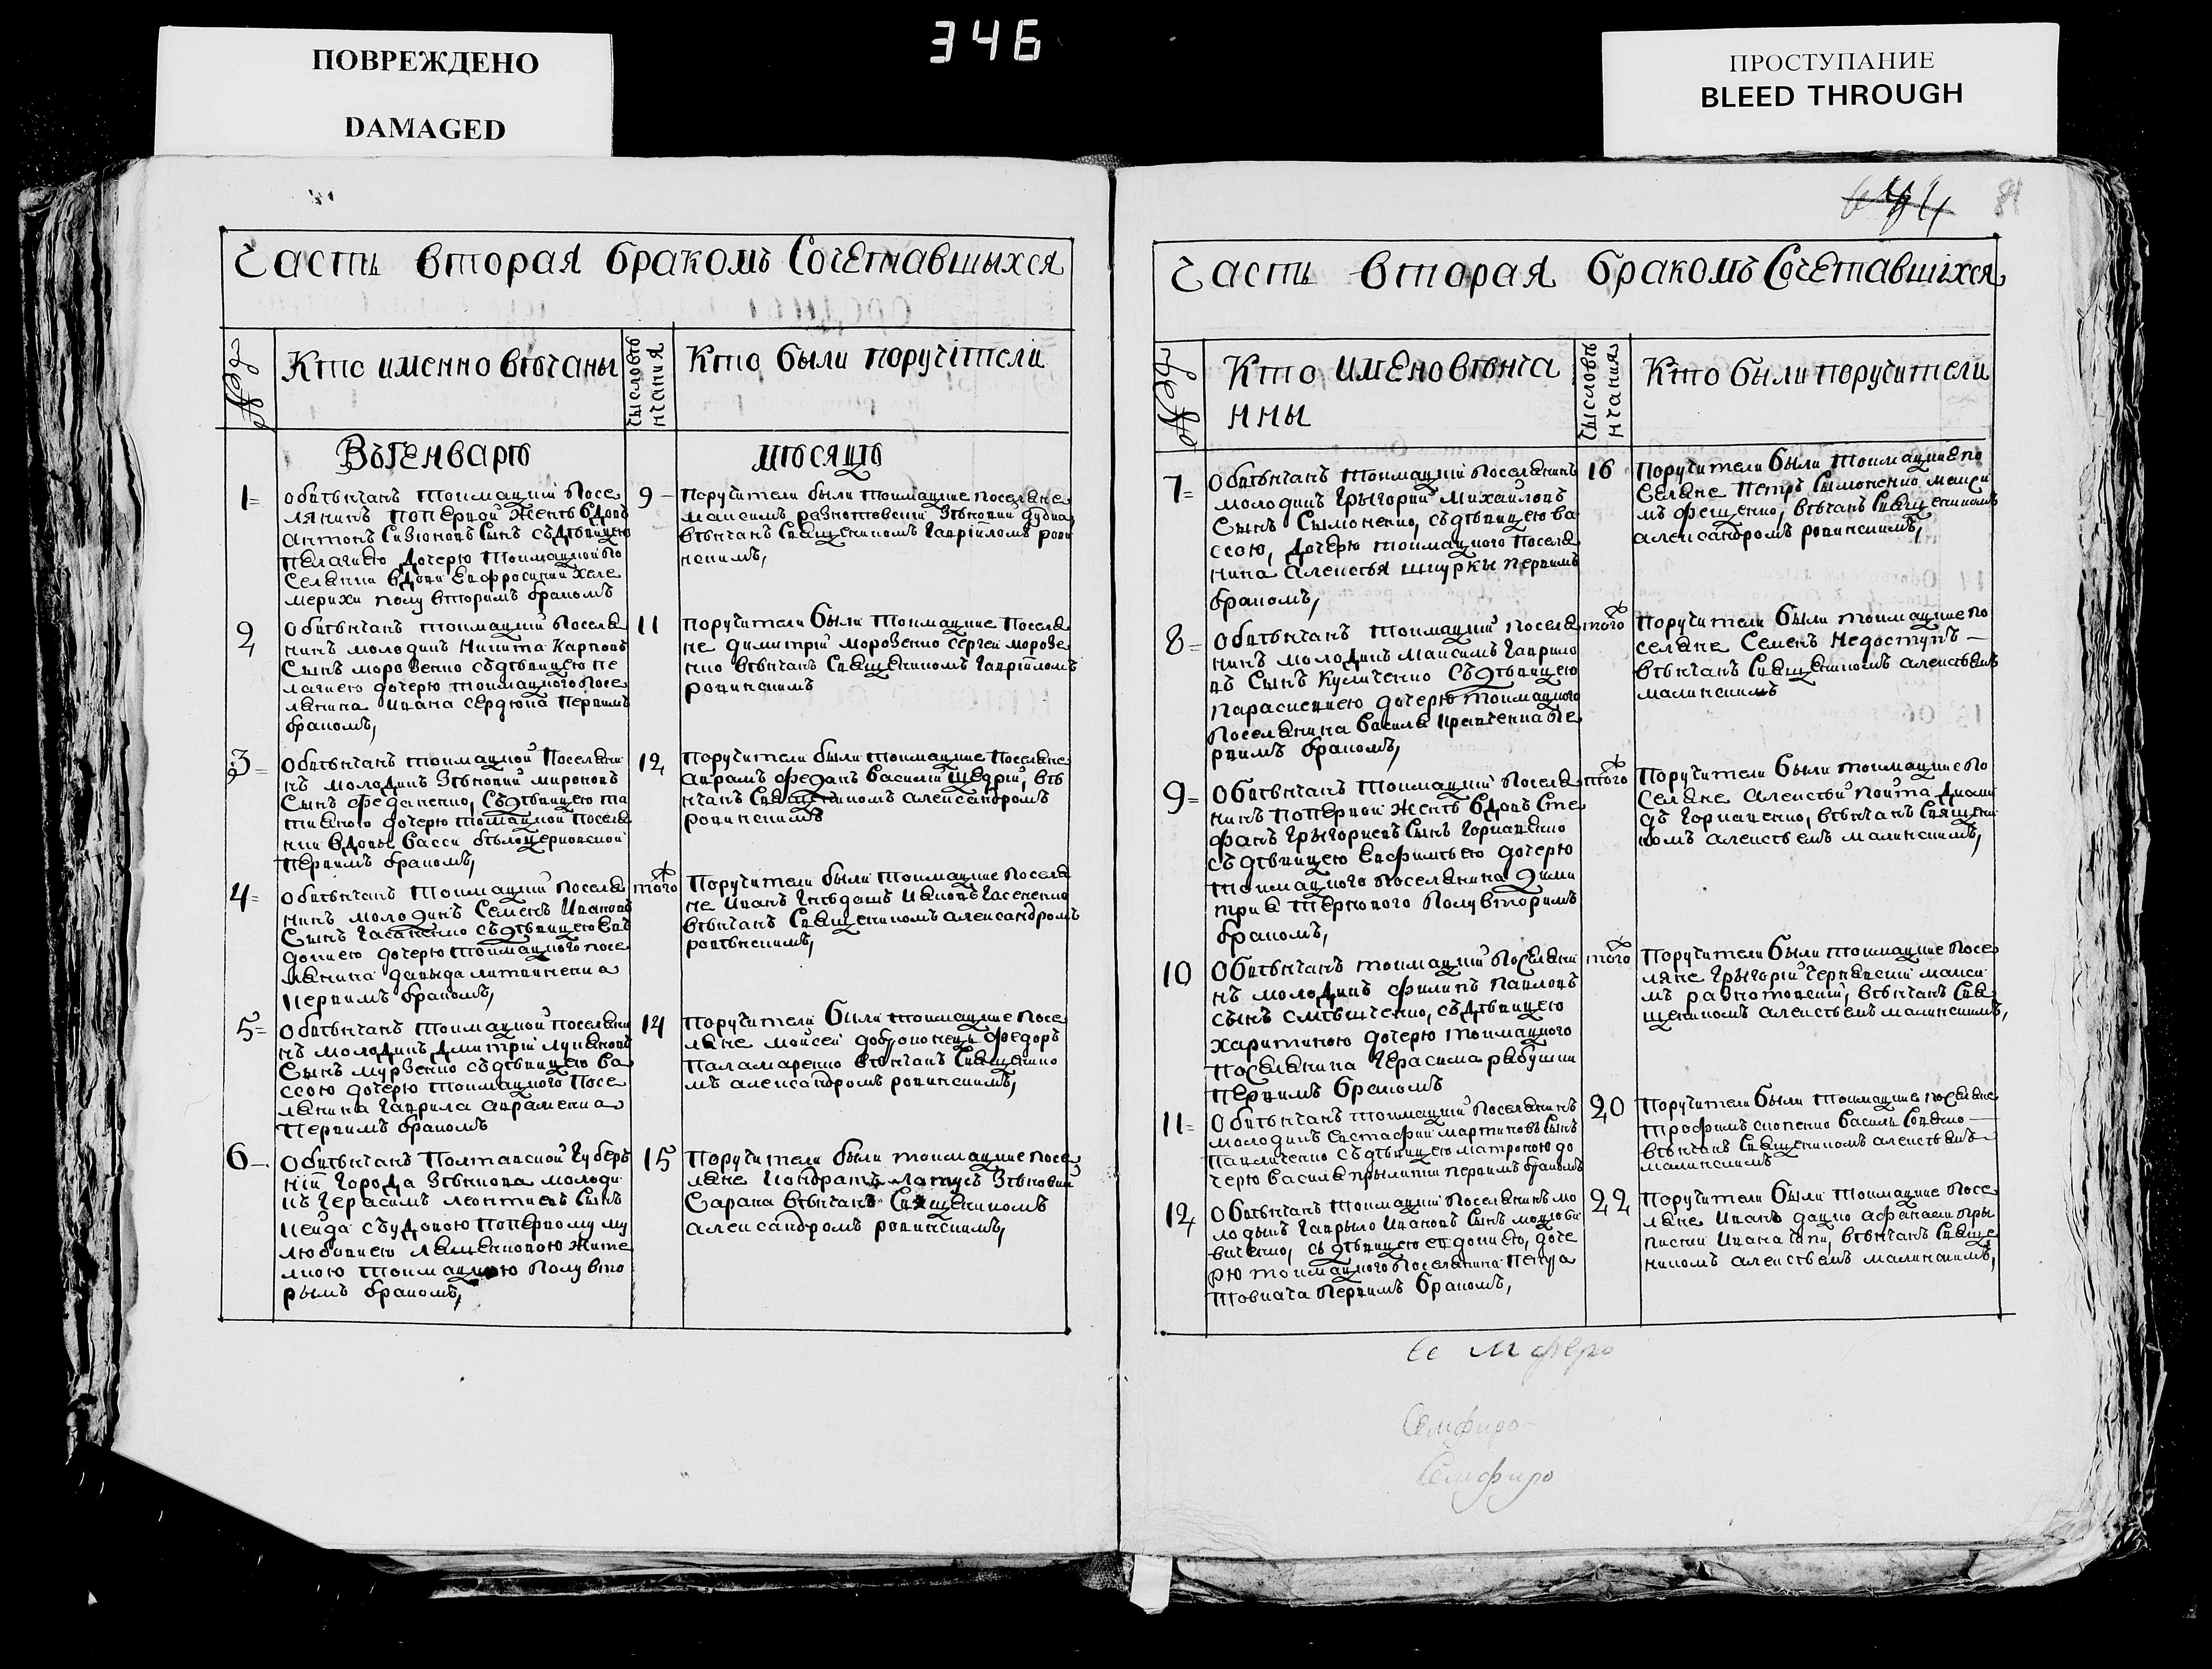 ПОВРЕЖДЕНО
DAMAGED
346
ПРОСТУПАНИЕ
BLEED THROUGH
84
Часть вторая бракомъ Сочетавшыхся
№
Кто именно вѣчаны
Чысловѣ
нчания
Кто были поручители
Въ Генварѣ
мѣсяцѣ
1=
Обвѣнчанъ тоїмацкій посе
лянинъ попервой женѣ вдовъ
антонъ Сизионовъ Сынъ съдѣвицею
пелагиею дочерю тоїмацкой по
Селянки вдови Евфросинии
мерихи полу вторимъ бракомъ
9
Поручители были тоїмацкие поселяне
максимъ разнотовскій Зѣновий дубина
вѣнчанъ Священикомъ Гавріиломъ рови
нскимъ,
2
Обвѣнчанъ тоїмацкій поселя
нинъ молодикъ Никита Карповъ
Сынъ морозенко съдѣвицею пе
лагиею дочерю тоїмацкого посе
лянина ивана сердюка Первимъ
бракомъ,
11
Поручители были тоїмацкие Поселя
не димитрій морозенко сергей морозе
нко вѣнчанъ Священикомъ Гавріиломъ
ровинскимъ
3=
Обвѣнчанъ тоїмацкой Поселяни
нъ молодикъ Зѣновий мироновъ
Сынъ феданенко, съдѣвицею та
тияною дочерю тоїмацкой поселя
нки вдовы Васси бѣлоцерковской
Первимъ бракомъ,
12
Поручители были тоїмацкие Поселяне
аврамъ федакъ василій щедрій, вѣ
нчанъ Священикомъ александромъ
ровинскимъ
4=
Обвѣнчанъ тоїмацкий поселя
нинъ молодикъ Семенъ Ивановъ
Сынъ Гасаненко съдѣвицею Евъ
докиею дочерю тоїмацкого посе
лянина давыда литвиненка
Первимъ бракомъ,
того
Поручители были тоїмацкие поселя
не Иванъ Гнѣдашъ Ивановъ Гасененко
вѣнчанъ Священикомъ александромъ
ровѣнскимъ,
5=
Обвѣнчанъ тоїмацкой поселяни
нъ молодикъ дмитрій лукяновъ
Сынъ мурзенко съдѣвицею ва
ссою дочерю тоїмацкого Посе
лянина Гаврила авраменка
Первимъ бракомъ
14
Поручители были тоїмацкие посе
ляне мойсей федоръ
Паламаренко вѣнчанъ Священико
мъ александромъ ровинскимъ,
6
Обвѣнчанъ Полтавской Губеръ
ній города Зѣнкова молоди
къ Герасимъ леонтиевъ Сынъ
Кейда съудовою поперьвому му
любовиею лященковою жите
лкою тоїмацкою полувто
рымъ бракомъ,
15
Поручители были тоїмацкие посе
ляне Кондратъ латусъ Зѣновий
Сарана вѣнчанъ Священикомъ
александромъ ровинскимъ,
Часть вторая бракомъ Сочетавшіхся
№
Кто имено вѣнча
нны
Чысловѣ
нчания
Кто были поручители
7=
Обвѣнчанъ тоїмацкій поселянинъ
молодикъ Грыгорий Михайловъ
Сынъ Сымоненко, съдѣвицею ва
ссою, дочерю тоїмацкого Поселя
нина алексѣя шпуркы первимъ
бракомъ,
16
Поручители были тоїмацкие по
селяне Петръ Сымоненко макси
мъ фещенко, вѣнчанъ Священикомъ
александромъ ровинскимъ,
8=
Обвѣнчанъ тоїмацкий поселя
нинъ молодикъ максимъ Гаврило
въ Сынъ Куличенко съдѣвицею
параскевиею дочерю тоїмацкого
поселянина Василя Кравченка пе
рвимъ бракомъ,
того
Поручители были тоїмацкие по
селяне Семенъ Недоступъ
вѣнчанъ Священикомъ алексѣемъ
малинскимъ
9=
Обвѣнчанъ тоїмацкий поселя
нинъ поперьвой женѣ вдовъ сте
фанъ грыгориевъ Сынъ Горпавенко
съдѣвицею Евфимѣею дочерю
тоїмацкого поселянина дими
трия тернового полувторимъ
бракомъ,
того
Поручители были тоїмацкие по
селяне алексѣй пойта, диоми
дъ Горпавенко, вѣнчанъ Священи
комъ алексѣемъ малинскимъ,
10
Обвѣнчанъ тоїмацкий поселяни
нъ молодикъ филипъ Павловъ
сынъ смѣщенко, съдѣвицею
харитиною дочерю тоїмацкого
поселянина Герасима рабушки
первимъ бракомъ
того
Поручители были тоїмацкие посе
ляне Грыгорій Чернявский макси
мъ разнотовский, вѣнчанъ Свя
щеникомъ алексѣемъ малинскимъ,
11=
Обвѣнчанъ тоїмацкий поселянинъ
молодикъ Евстафий мартиновъ Сынъ
Павличенко съдѣвицею матроною до
черю василя крылития первимъ бракомъ
20
Поручители были тоїмацкие поселяне
трофимъ скопенко василь
вѣнчанъ Священикомъ алексѣемъ
малинскимъ
12
Обвѣнчанъ тоїмацкий поселянинъ мо
лодыкъ Гаврыло Ивановъ Сынъ
виченко, съдѣвицею евдокиею, доче
рю тоїмацкого поселянина Петра
товкача первимъ бракомъ,
22
Поручители были тоїмацкие посе
ляне Иванъ дацко афанасий
вѣнчанъ Свяще
никомъ алексѣемъ малинскимъ,
Семфиро
Семфиро